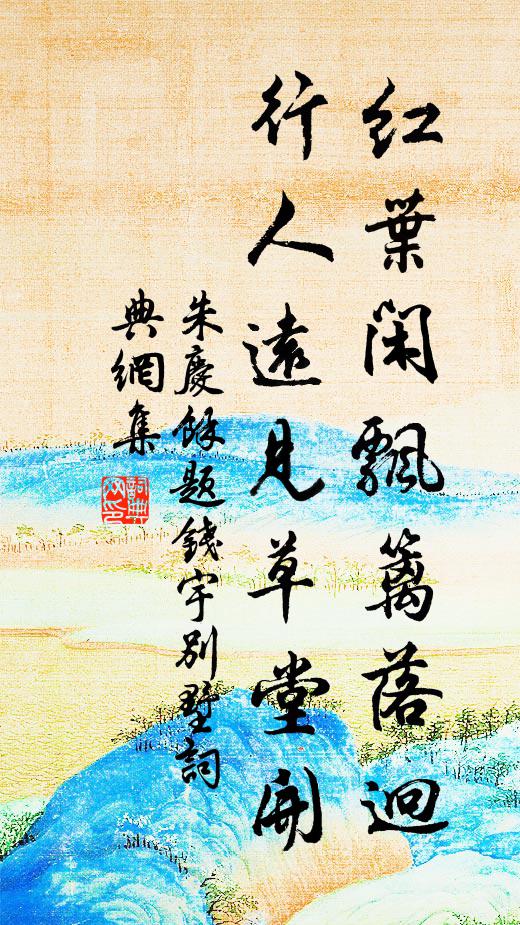 红葉闲飄篱落迥
行人遠見草堂開
朱慶餘題錢宇別墅詞
典網集